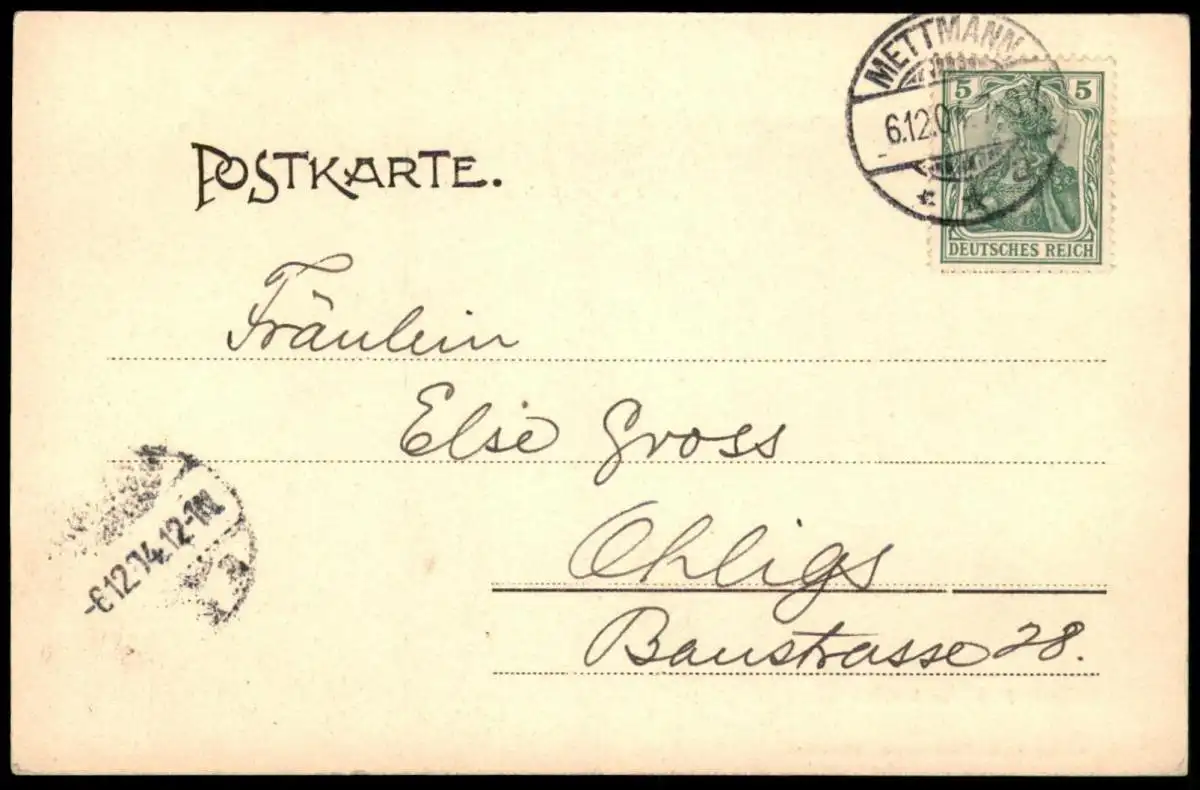 METTMANN
6.12.04.
5 5
DEUTSCHES REICH
POSTKARTE.
Fräulein
Else Gross
Ohligs
Baustrasse 28.
-6.12.04.12-1N.